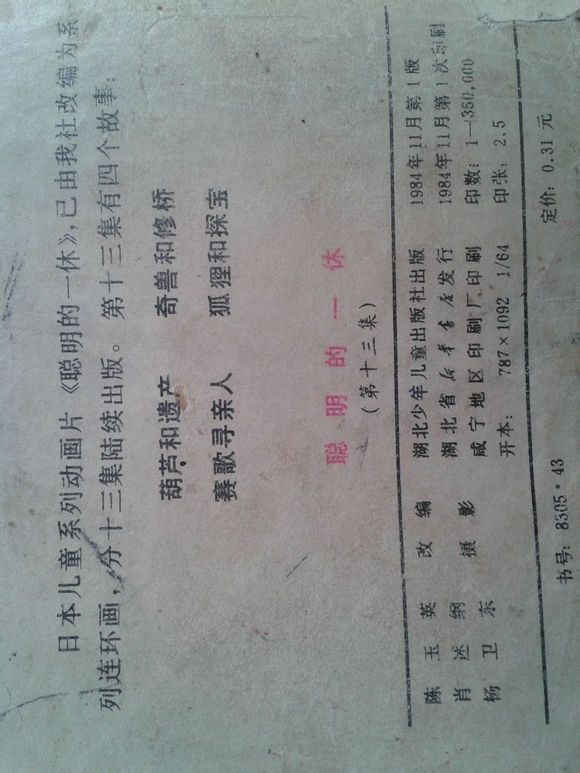 日本儿童系列动画片《聪明的一休》,已由我社改编为系
列连环画,分十三集陆续出版。第十三集有四个故事:
葫芦和遗产 奇兽和修桥
赛歌寻亲人 狐狸和探宝
聪明的一休
(第十三集)
陈玉英 改编
肖述纲 摄影
杨卫东
湖北少年儿童出版社出版
湖北省新华书店发行
咸宁地区印刷厂印刷
开本: 787×1092 1/64
1984年11月第1版
1984年11月第1次印刷
印数: 1—350,000
印张: 2.5
书号: 8305·43
定价: 0.31元